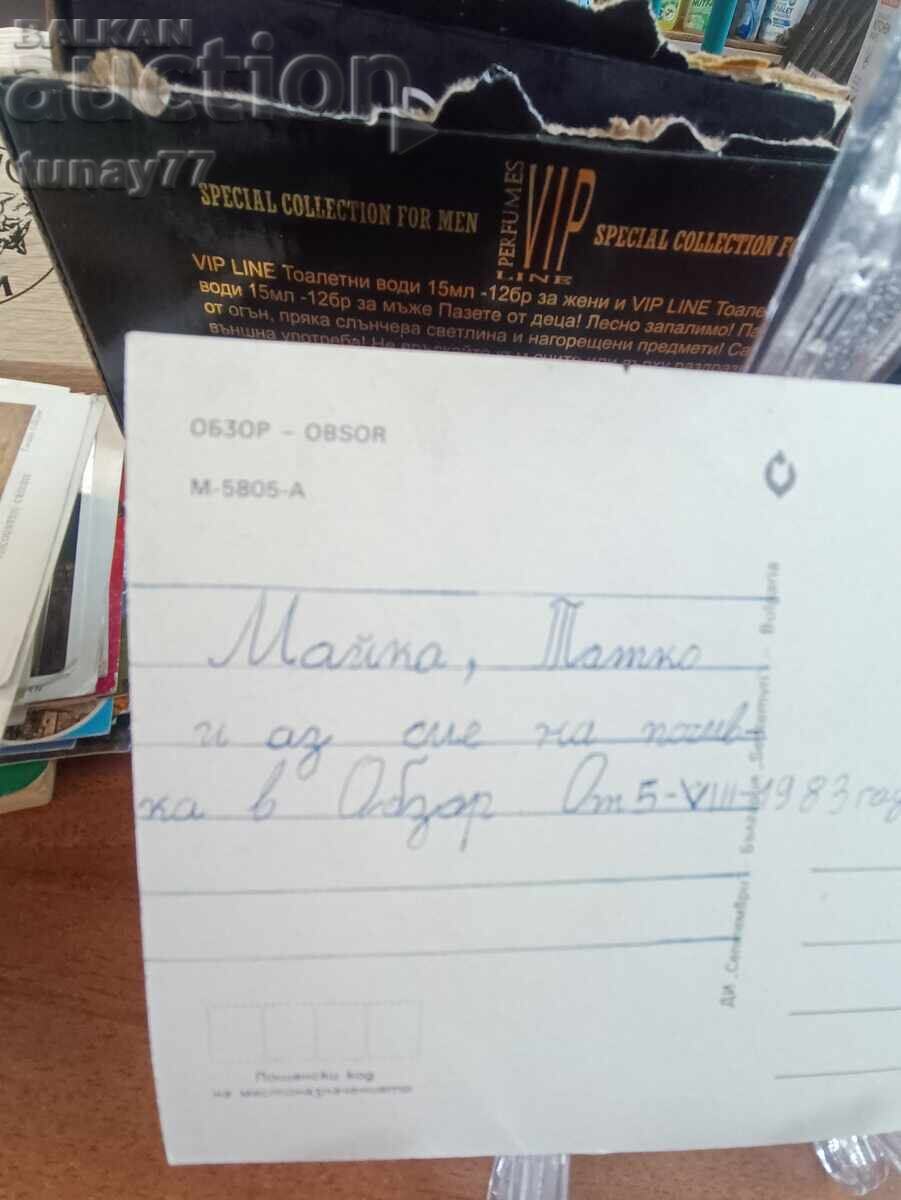 BALKAN
auction
tunay77
SPECIAL COLLECTION FOR MEN
PERFUMES
VIP
LINE
SPECIAL COLLECTION FO
VIP LINE Тоалетни води 15мл -12бр за жени и VIP LINE Тоале
води 15мл -12бр за мъже Пазете от деца! Лесно запалимо! Па
от огън, пряка слънчева светлина и нагорещени предмети! Са
външна употреба! Не
ОБЗОР – OBSOR
М-5805-А
Майка, Татко
и аз сме на почив-
ка в Обзор От 5-VIII-1983 год
ДИ „Септември" България Bulgaria
Пощенски код
на местоназначението